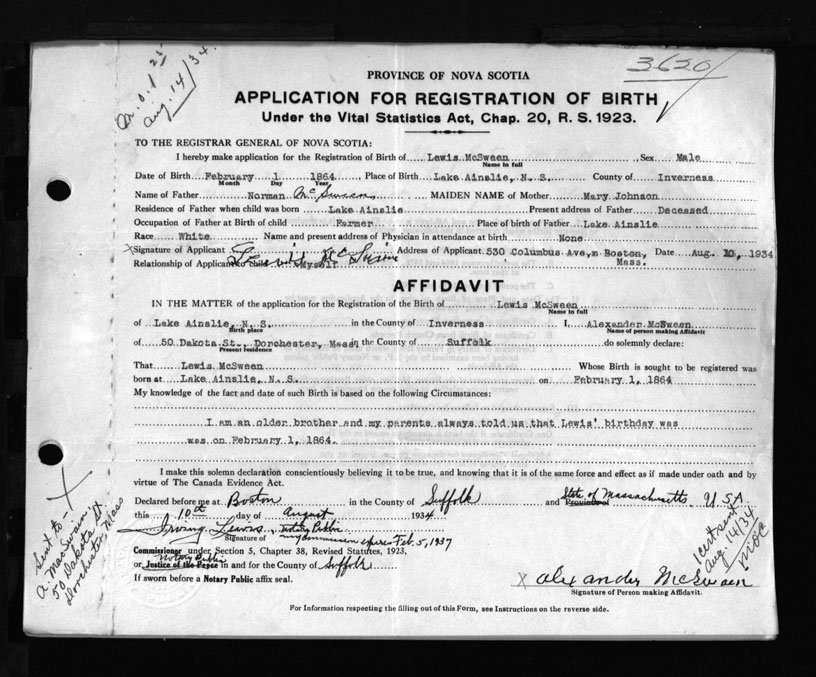 3620
PROVINCE OF NOVA SCOTIA
APPLICATION FOR REGISTRATION OF BIRTH
Under the Vital Statistics Act, Chap. 20, R. S. 1923.
Aug. 14/34.
TO THE REGISTRAR GENERAL OF NOVA SCOTIA:
I hereby make application for the Registration of Birth of Lewis McSween Sex Male
Name in full
Date of Birth February 1 1864, Place of Birth Lake Ainslie, N. S. County of Inverness
Month Day Year
Name of Father Norman McSween MAIDEN NAME of Mother Mary Johnson
Residence of Father when child was born Lake Ainslie Present address of Father Deceased
Occupation of Father at Birth of child Farmer Place of birth of Father Lake Ainslie
Race White Name and present address of Physician in attendance at birth None
X Signature of Applicant Address of Applicant 530 Columbus Ave,m Boston, Date Aug. 10, 1934
Relationship of Applicant to child Myself Mass.
AFFIDAVIT
IN THE MATTER of the application for the Registration of the Birth of Lewis McSween
Name in full
of Lake Ainslie, N. S. in the County of Inverness I, Alexander McSween
Birth place Name of person making Affidavit
of 50 Dakota St., Dorchester, Mass, in the County of Suffolk do solemnly declare:
Present residence
That Lewis McSween Whose Birth is sought to be registered was
born at Lake Ainslie, N. S. on February 1, 1864
My knowledge of the fact and date of such Birth is based on the following Circumstances:
I am an older brother and my parents always told us that Lewis' birthday was
was on February 1, 1864.
I make this solemn declaration conscientiously believing it to be true, and knowing that it is of the same force and effect as if made under oath and by
virtue of The Canada Evidence Act.
Declared before me at Boston in the County of Suffolk and Province of State of Massachusetts, U S A
this 10th day of August 1934
Irving Lewis, Notary Public
Signature of my Commission expires Feb. 5, 1937
Commissioner under Section 5, Chapter 38, Revised Statutes, 1923,
Notary Public
or Justice of the Peace in and for the County of Suffolk
If sworn before a Notary Public affix seal.
X Alexander McSween
Signature of Person making Affidavit.
For Information respecting the filling out of this Form, see Instructions on the reverse side.
Sent to - X
A. MacSween
50 Dakota St
Dorchester, Mass
Cert sent
Aug 14/34